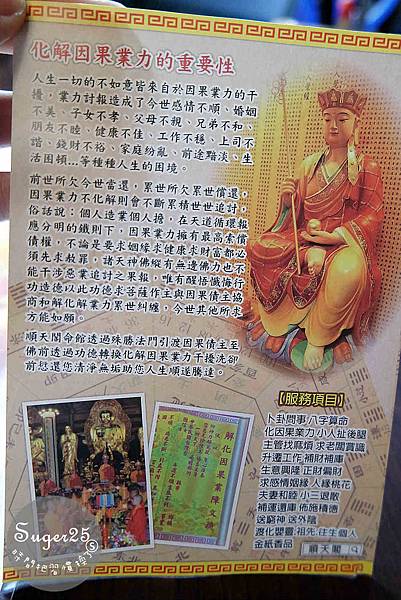 化解因果業力的重要性
人生一切的不如意皆來自於因果業力的干
擾，業力討報造成了今世感情不順、婚姻
不美、子女不孝、父母不親、兄弟不和、
朋友不睦、健康不佳、工作不穩、上司不
諧、錢財不裕、家庭紛亂、前途黯淡、生
活困頓...等種種人生的困境。
前世所欠今世當還，累世所欠累世償還，
因果業力不化解則會不斷累積世世追討，
俗話說：個人造業個人擔，在天道循環報
應分明的鐵則下，因果業力擁有最高索償
債權，不論是要求姻緣求健康求財富都必
須先求赦罪，諸天神佛縱有無邊佛力也不
能干涉惡業追討之果報，唯有醒悟懺悔行
功造德以此功德求菩薩作主與因果債主協
商和解化解業力累世糾纏，今世其他所求
方能如願。
順天閣命館透過殊勝法門引渡因果債主至
佛前透過功德轉換化解因果業力干擾洗卻
前愆還您清淨無垢助您人生順遂騰達。
【服務項目】
卜卦問事 八字算命
化因果業力 小人扯後腿
主管找麻煩 求老闆賞識
升遷工作 補財補庫
生意興隆 正財偏財
求感情姻緣 人緣桃花
夫妻和睦 小三退散
補運還庫 佈施積德
送窮神 送外陰
渡化嬰靈.祖先.往生個人
金紙香品
順天閣
解化因果業障文疏
Suger25